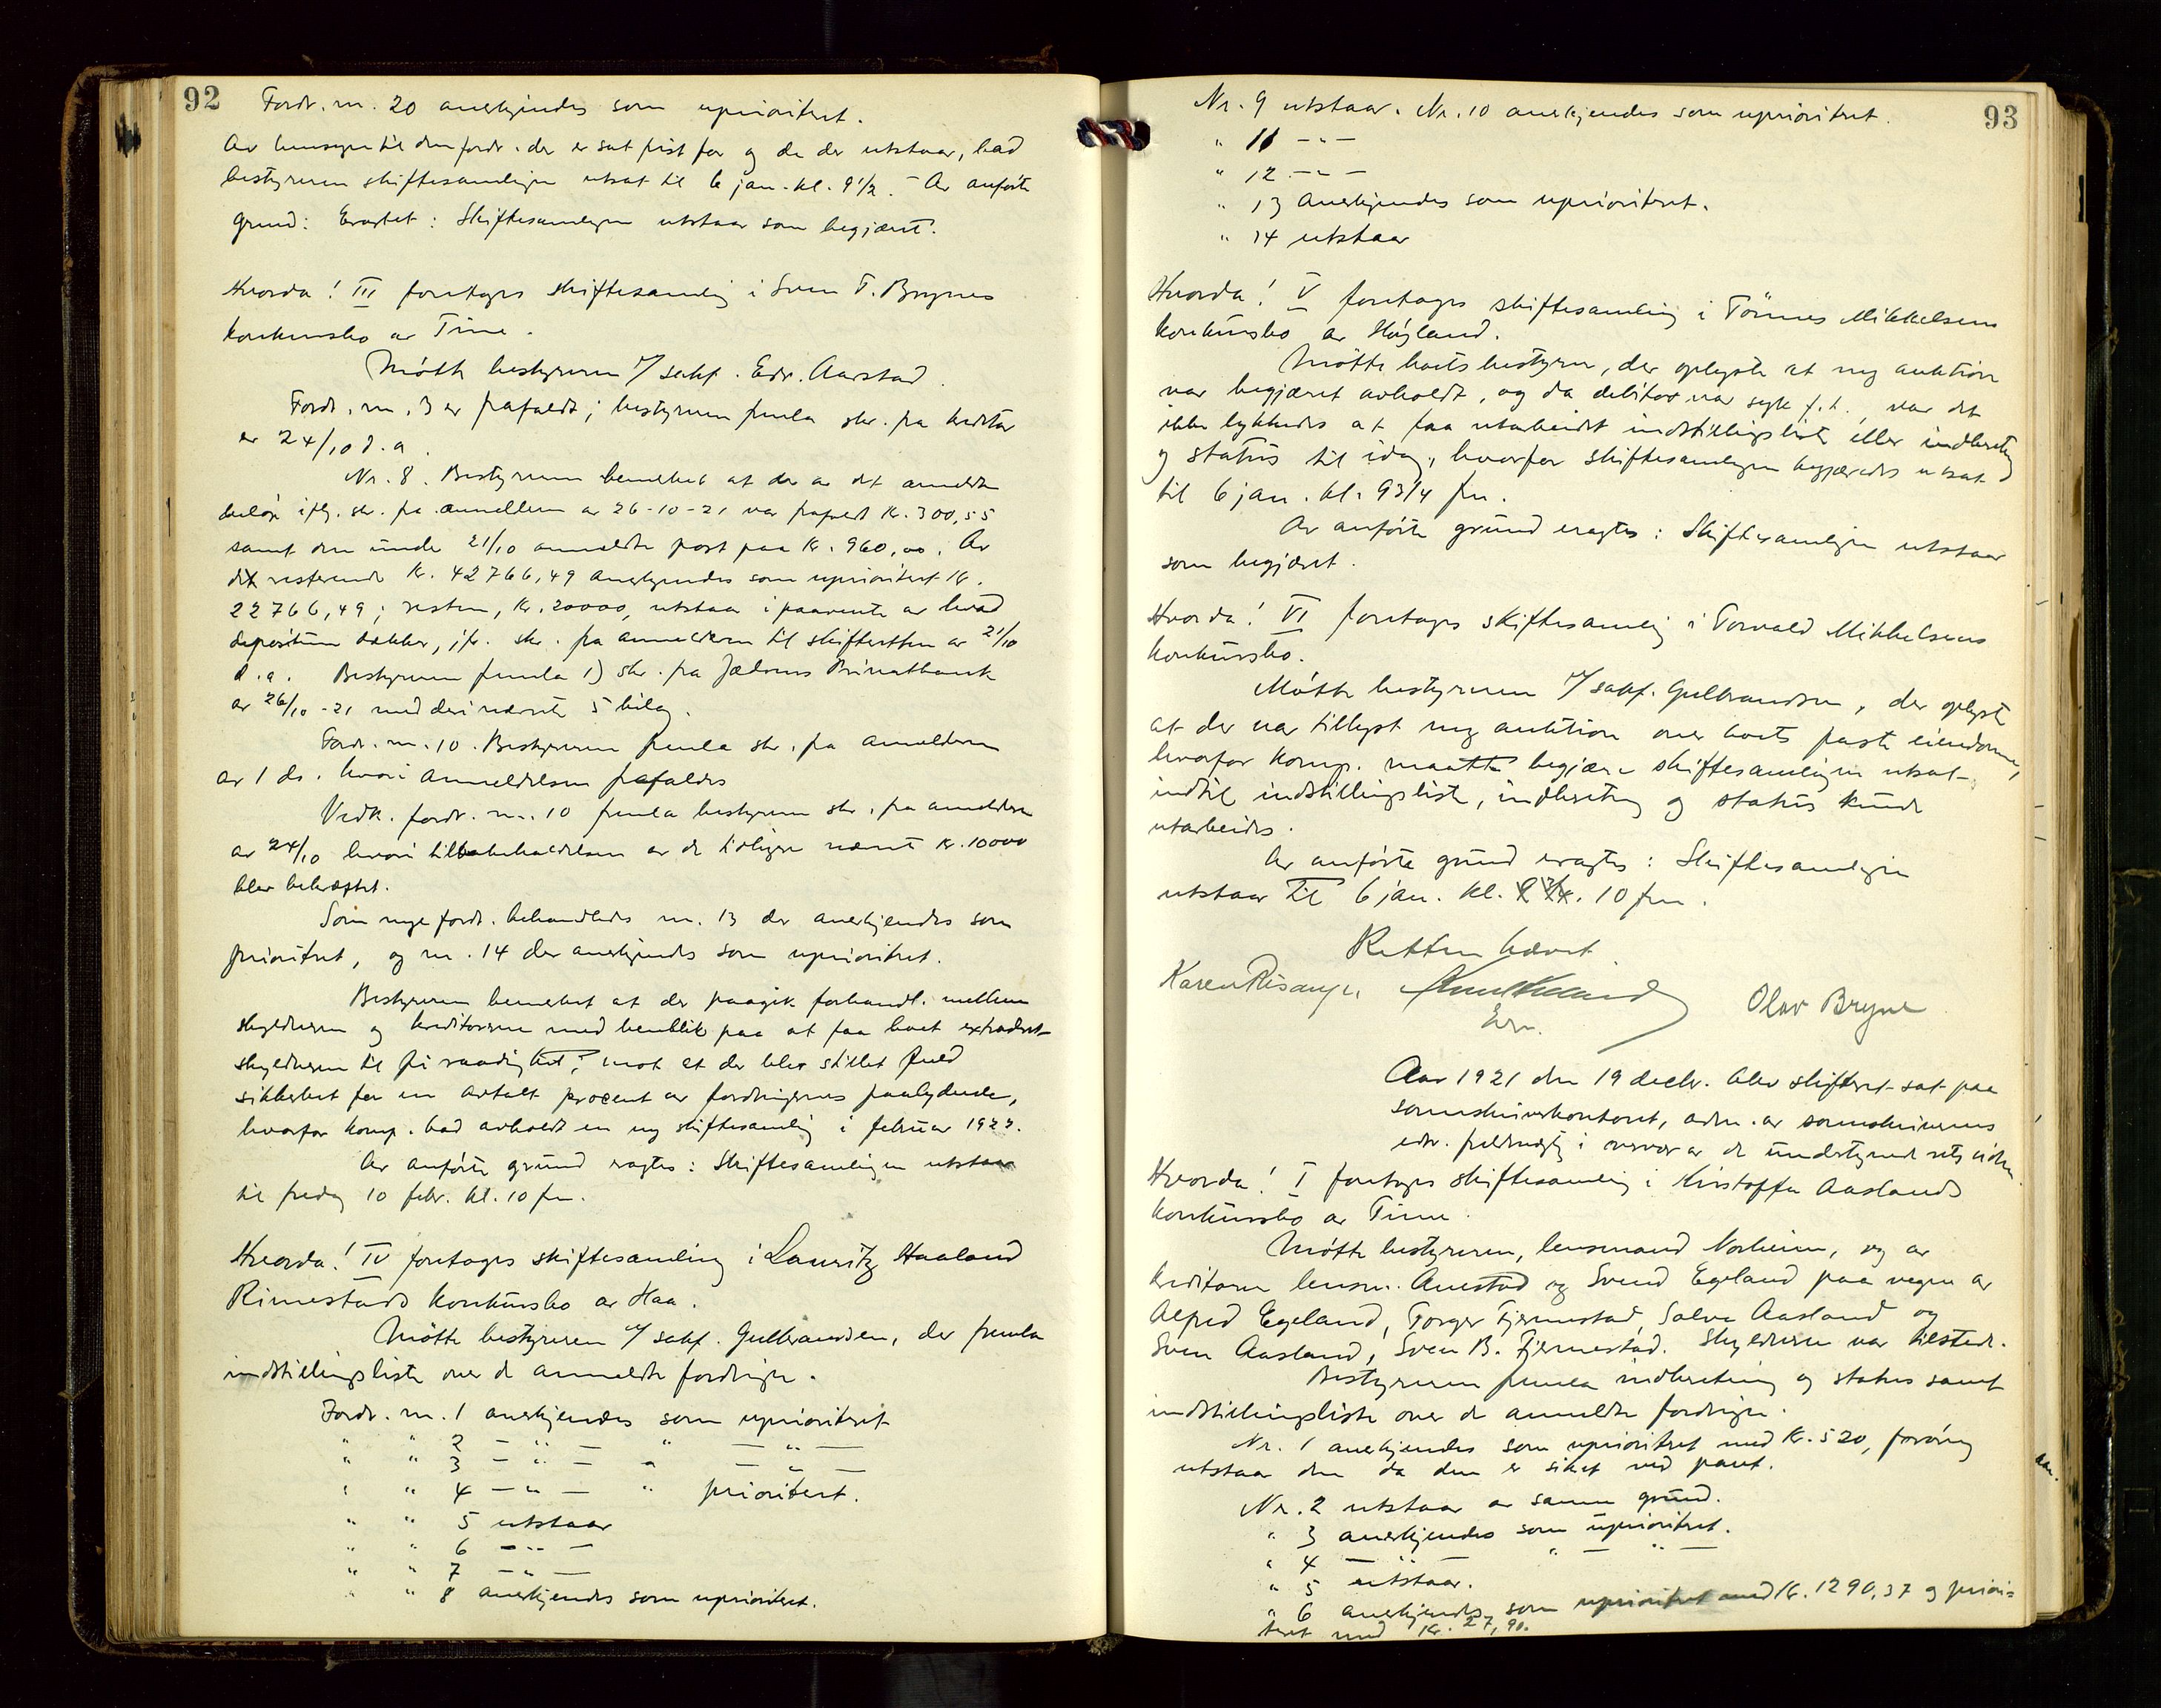 92
Fordr. nr. 20 anerkjendes som uprioritert.
Av hensyn til den fordr. der er sat frist for og de der utstaar, bad
bestyreren skiftesamlingen utsat til 6 jan. kl. 9 1/2. - Av anførte
grund: Eragtet: Skiftesamlingen utstaar som begjært.
Hvorda! III foretoges skiftesamling i Sven T. Brynes
konkursbo av Time.
Møtte bestyreren v/ sakf. Edv. Aarstad.
Fordr. nr. 3 er frafaldt; bestyreren fremla skr. fra kreditor
av 24/10 d. a.
Nr. 8. Bestyreren bemerket at der av det anmeldte
beløp iflg. skr. fra anmelderen av 26-10-21 var frafaldt Kr. 300,55
samt den under 21/10 anmeldte post paa Kr. 960,00. Av
det resterende Kr. 42766,49 anerkjendes som uprioritert Kr.
22766,49; resten, Kr. 20000, utstaar i paavente av hvad
depositum dækker, jfr. skr. fra anmelderen til skifteretten av 21/10
d. a. Bestyreren fremla 1) skr. fra Jæderens Privatbank
av 26/10 - 21 med deri nævnte 5 bilag.
Fordr. nr. 10. Bestyreren fremla skr. fra anmelderen
av 1 ds. hvori anmeldelsen frafaldes
Vedk. fordr. nr. 10 fremla bestyreren skr. fra anmelderen
av 24/10 hvori tilbakeholdelsen av de tidligere nævnte Kr. 10000
blev bekræftet.
Som nye fordr. behandledes nr. 13 der anerkjendes som
prioritert, og nr. 14 der anerkjendes som uprioritert.
Bestyreren bemerket at der paagik forhandl. mellem
skyldneren og kreditorerne med henblik paa at faa boet extradert
skyldneren til fri raadighet, mot at der blev stillet fuld
sikkerhet for en avtalt procent av fordringernes paalydende,
hvorfor komp. bad avholdt en ny skiftesamling i februar 1922.
Av anførte grund eragtes: Skiftesamlingen utstaar
til fredag 10 febr. kl. 10 fm.
Hvorda! IV foretoges skiftesamling i Lauritz Haaland
Rimestads konkursbo av Haa.
Møtte bestyreren v/ sakf. Gulbrandsen, der fremla
indstillingsliste over de anmeldte fordringer.
Fordr. nr. 1 anerkjendes som uprioritert
" " 2 - " - " - " -
" " 3 - " - " - " -
" " 4 - " - " prioritert.
" " 5 utstaar
" " 6 - " -
" " 7 - " -
" " 8 anerkjendes som uprioritert.
93
Nr. 9 utstaar. Nr. 10 anerkjendes som uprioritert.
" 11 - " -
" 12 - " -
" 13 anerkjendes som uprioritert.
" 14 utstaar
Hvorda! V foretoges skiftesamling i Tønnes Mikkelsens
konkursbo av Høyland.
Møtte boets bestyrer, der oplyste at ny auktion
var begjæret avholdt, og da debitor var syk f. t., var det
ikke lykkedes at faa utarbeidet indstillingsliste eller indberetning
og status til idag, hvorfor skiftesamlingen begjæredes utsat
til 6 jan. kl. 9 3/4 fm.
Av anførte grund eragtes: Skiftesamlingen utstaar
som begjæret.
Hvorda! VI foretoges skiftesamling i Torvald Mikkelsens
konkursbo.
Møtte bestyreren v/ sakf. Gulbrandsen, der oplyste
at der var tillyst ny auktion over boets faste eiendom,
hvorfor komp. maatte begjære skiftesamlingen utsat
indtil indstillingsliste, indberetning og status kunde
utarbeides.
Av anførte grund eragtes: Skiftesamlingen
utstaar til 6 jan. kl. 10 fm.
Retten hævet.
Karen Risanger
Edv.
Olav Bryne
Aar 1921 den 19 decbr. blev skifteret sat paa
sorenskriverkontoret, adm. av sorenskriverens
edv. fuldmægtig i overvær av de undertegnede retsvidner
Hvorda! I foretoges skiftesamling i Kristoffer Aaslands
konkursbo av Time.
Møtte bestyreren, lensmand Norheim, og av
kreditorer lensm. Anestad og Svend Egeland paa vegne av
Alfred Egeland, Torger Fjermestad, Salve Aasland og
Sven Aasland, Sven B. Fjermestad. Skyldneren var tilstede.
Bestyreren fremla indberetning og status samt
indstillingsliste over de anmeldte fordringer.
Nr. 1 anerkjendes som uprioritert med Kr. 520, forøvrig
utstaar den da den er sikret ved pant.
Nr. 2 utstaar av samme grund.
" 3 anerkjendes som uprioritert.
" 4 - " - " - " -
" 5 utstaar.
" 6 anerkjendes som uprioritert med Kr. 1290,37 og priori-
tert med Kr. 27,90.